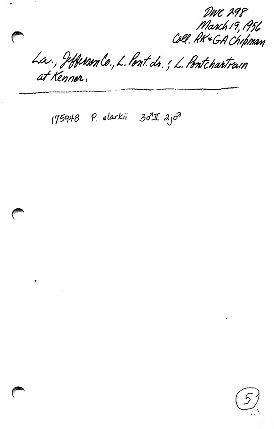 DWC 298
March 19, 1956
Coll. RK & GA Chipman
La., Jefferson Co., L. Pont. dr.; L. Pontchartrain
at Kenner.
175948 P. clarkii 3♂II 2j♂
5